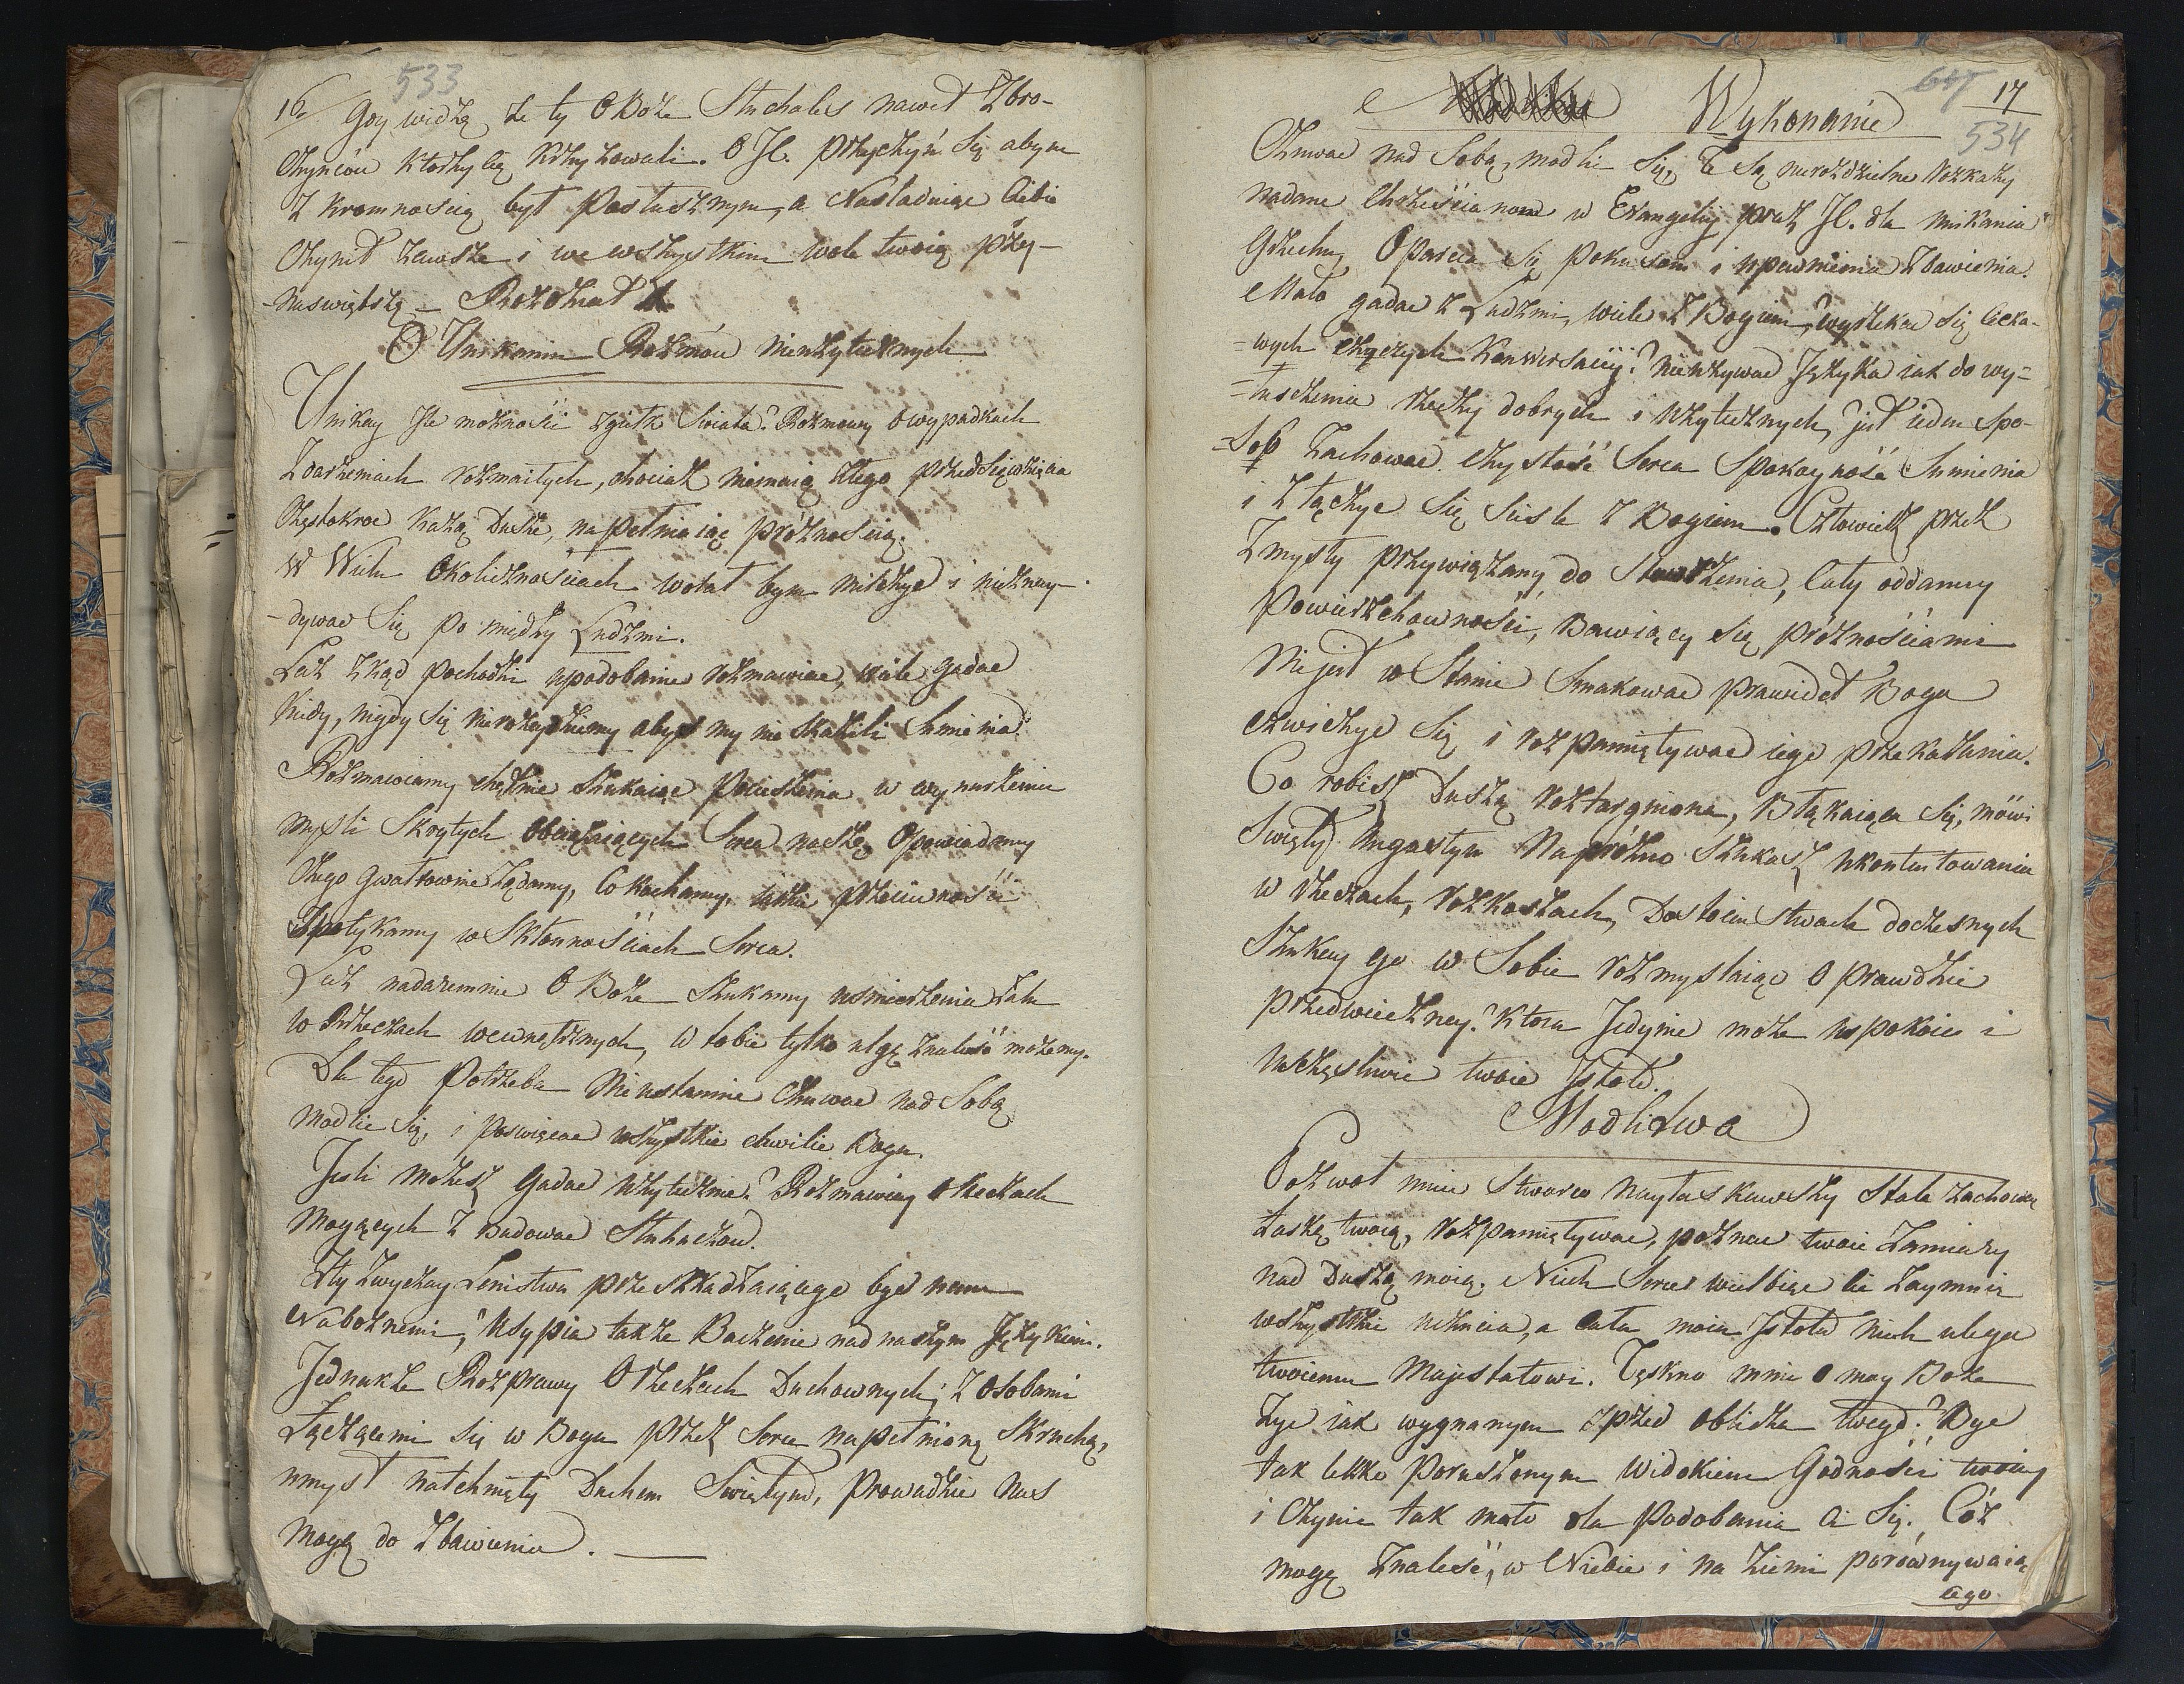 533
16. Gdy widzę że ty O Boże Słuchałeś nawet Zbro-
Czyńców którzy Cię Krzyżowali. O JC. przyczyń Się abym
Z kromnością był Posłusznym, a Naśladuiąc Ciebie
Czynił zawsze i we wszystkim wolę twoią prze-
-naswiętszą. — Rozdział X
O Unikaniu Rozmów nieużytecznych
Unikay Ile możności zgiełk Swiata? Rozmowy o wypadkach
Zdarzeniach rozmaitych, chociaż niemaią złego przedsięwzięcia
Częstokroć każą Duszę, napełniaiąc próżnością.
W Wielu Okolicznościach wolał bym milczyć i nieznay-
-dywać Się po między Ludzmi.
Lecz zkąd pochodzi upodobanie rozmawiać, wiele gadać
kiedy, nigdy się nierozeydziemy abyś my nie skazili Sumienia?
Rozmawiamy chętnie szukaiąc Pocieszenia w wynurzeniu
myśli Skrytych obciążaiących Serca nasze, Opowiadamy
Czego gwałtownie Żądamy, Co kochamy, iakie przeciwności
Spotykamy w Skłonnościach Serca.
Lecz nadaremnie O Boże szukamy uśmierzenia żalu
w Rzeczach wewnętrznych, w tobie tylko ulgę znaleść możemy.
Dla tego Potrzeba Nieustannie Czuwać nad Sobą
modlić się, i poswięcać wszystkie chwilie Bogu.
Jeśli możesz Gadać użytecznie? Rozmawiay o Rzeczach
Mogących Z budować Słuchaczów.
Zły Zwyczay Lenistwa przeszkadzaiącego być nam
Nabożnemi, Usypia także Baczenie nad naszym Językiem.
Jednakże Rozprawy O rzeczach Duchownych, z osobami
Łączącemi się w Bogu przez Serce napełnione Skruchą,
umysł natchnięty Duchem Swiętym, prowadzić nas
mogą do Zbawienia. —
17
534
Wykonanie
Czuwać nad Sobą, modlić Się, Te Są nierozdzielne rozkazy
nadane Chrześcianom w Ewangelij przez JC. dla unikania
Grzechu, Oparcia się pokusom i upewnienia Zbawienia.
Mało gadać z Ludzmi, wiele z Bogiem, wyrzekać się Cieka-
-wych chęczych Konwersacyj? nieużywać Języka iak do wy-
-łuszczenia rzeczy dobrych i użytecznych, jest ieden Spo-
-sób Zachować Czystość Serca Spokayność Sumienia
i złączyć Się Sciśle z Bogiem. Człowiek przez
Zmysły przywiązany do Stworzenia, Cały oddany
Powierzchowności, Bawiący się próżnościami
Nie jest w Stanie Smakować prawideł Boga
Czwiczyć Się i rozpamiętywać iego przekazania.
Co robisz Duszą roztargniona, Błąkaiąca Się, mówi
Swięty Augustyn Napróżno Szukasz ukontentowania
w rzeczach, rozkoszach, Dostoieństwach doczesnych
Szukay go w Sobie rozmyślaiąc O prawdzie
przedwieczney? Która Jedynie może uspokoić i
uszczęśliwić twoie Istotę.
Modlitwa
Pozwol mnie Stworco nayłaskawszy Stale zachować
łaskę twoią, rozpamiętywać, poznać twoie Zamiary
nad Duszą moią. Niech Serce wielbiąc Cię zaymnie
wszystkie uczucia, a Cała moia Istota niech ulega
twoiemu Majestatowi. Tęskno mnie o moy Boże
żyć iak wygnanym zprzed oblicza twego? Być
tak lekko poruszonym Widokiem Godności twoiey
i Czynię tak mało dla Podobania Ci Się. Cóż
mogę Znaleść, w Niebie i na Ziemi porównywaią
cego